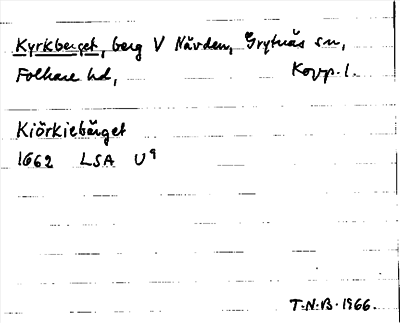 Kyrkberget, berg V Nävden, Grytnäs sn,
Folkare hd, Kopp. l.
Kiörkiebärget
1662 LSA U9
T.N.B. 1966.